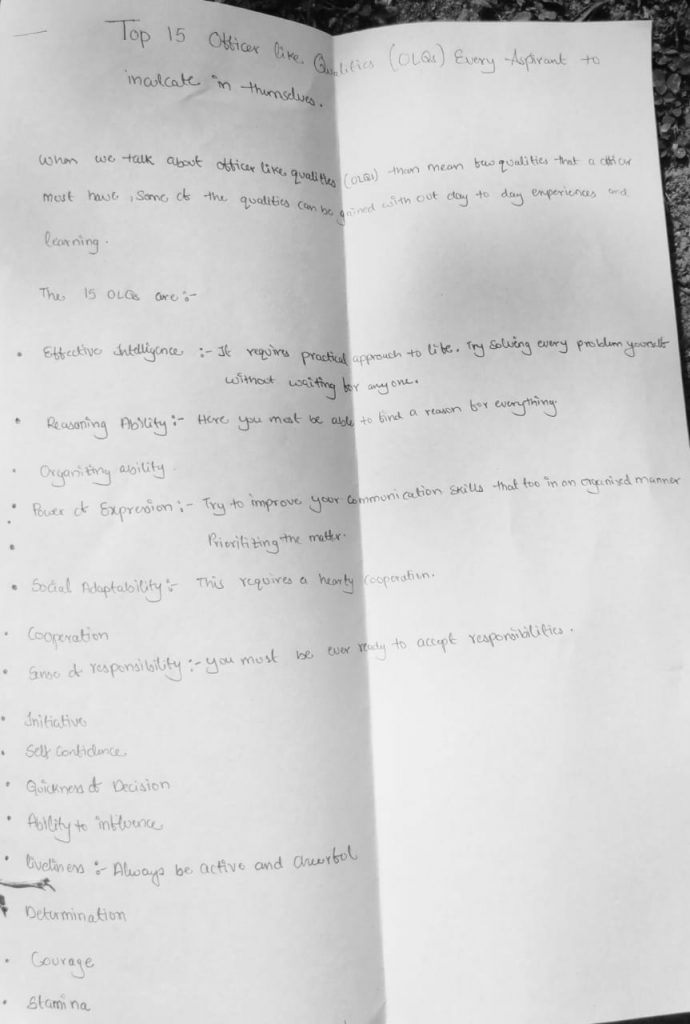 Top 15 Officer like Qualities (OLQs) Every Aspirant to
inculcate in themselves.
When we talk about officer like qualities (OLQs) than mean few qualities that a officer
most have, Some of the qualities can be gained with out day to day experiences and
learning.
The 15 OLQs are :-
• Effective Intelligence :- It requires practical approach to life. Try solving every problem yourself
without waiting for anyone.
• Reasoning Ability :- Here you most be able to find a reason for everything.
• Organizing ability
• Power of Expression :- Try to improve your communication skills that too in an organized manner
Prioritizing the matter.
• Social Adaptability :- This requires a hearty cooperation.
• Cooperation
• Sense of responsibility :- you most be ever ready to accept responsibilities.
• Initiative
• Self Confidence
• Quickness of Decision
• Ability to influence
• liveliness :- Always be active and cheerfol
• Determination
• Courage
• Stamina